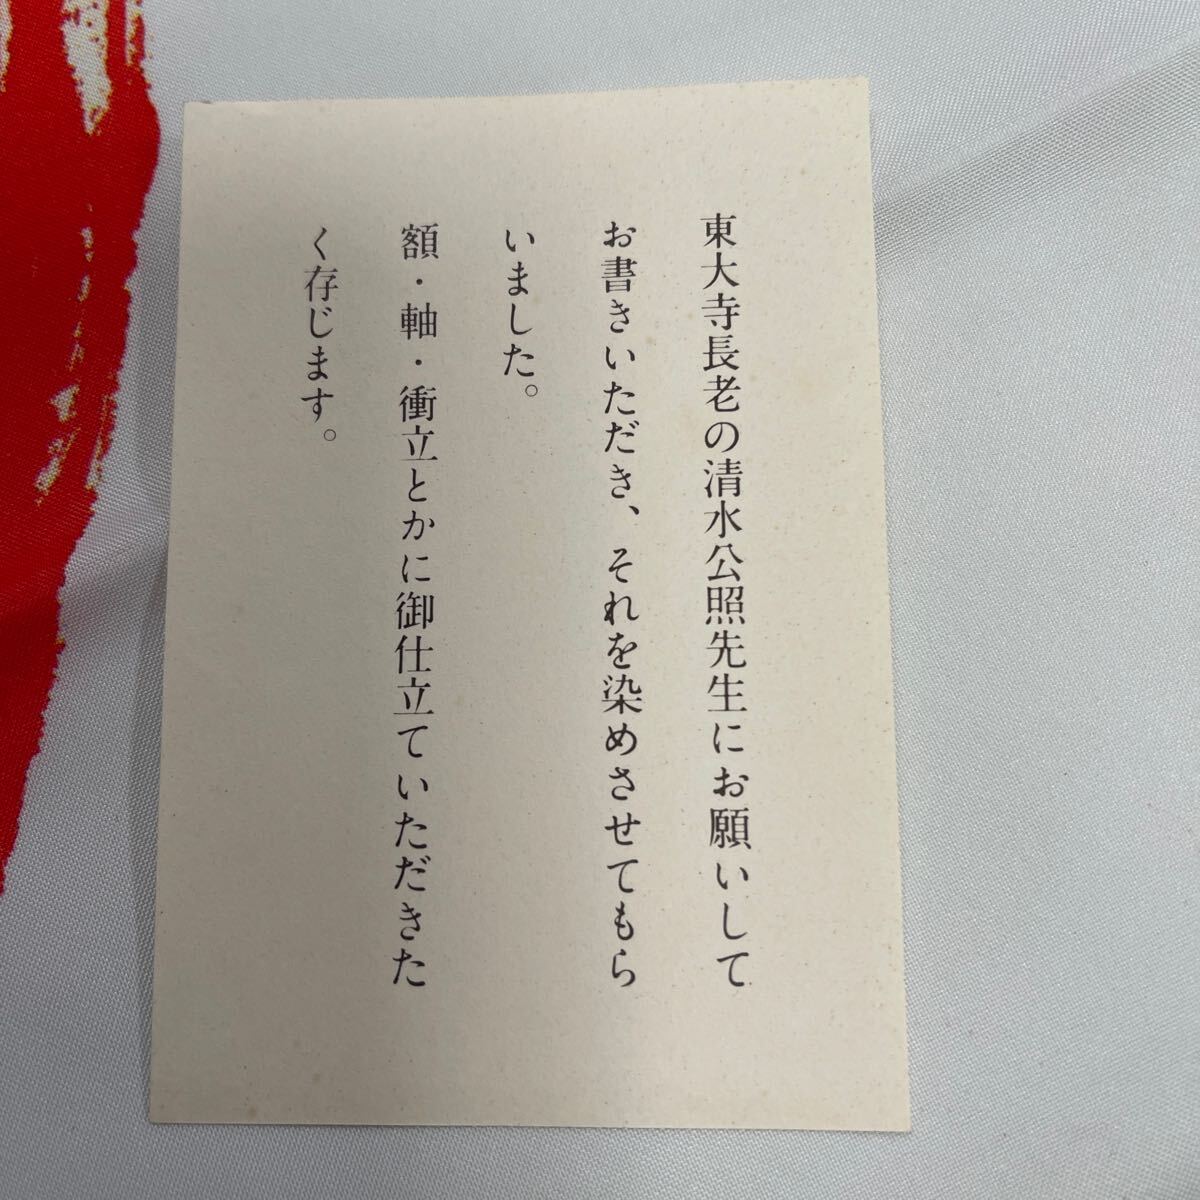 東大寺長老の清水公照先生にお願いして
お書きいただき、それを染めさせてもら
いました。
額・軸・衝立とかに御仕立ていただきた
く存じます。